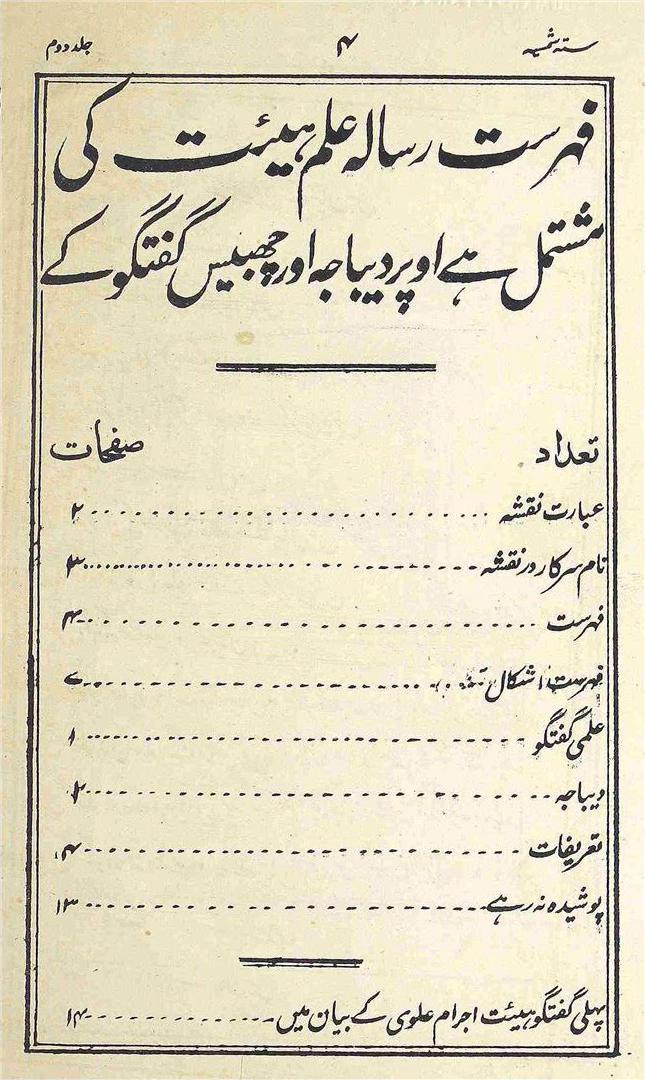 ستہ شمسیہ ۴ جلد دوم
فہرست رسالہ علم ہیئت کی
مشتمل ہے اوپر دیباچہ اور چھبیس گفتگو کے
تعداد صفحات
عبارت نقشہ ۲
نام سرکار و نقشہ ۳
فہرست ۴
فہرست اشکال
علمی گفتگو ۱
دیباچہ ۲
تعریفات ۴
پوشیدہ نہ رہے ۱۳
پہلی گفتگو ہیئت اجرام علوی کے بیان میں ۱۴